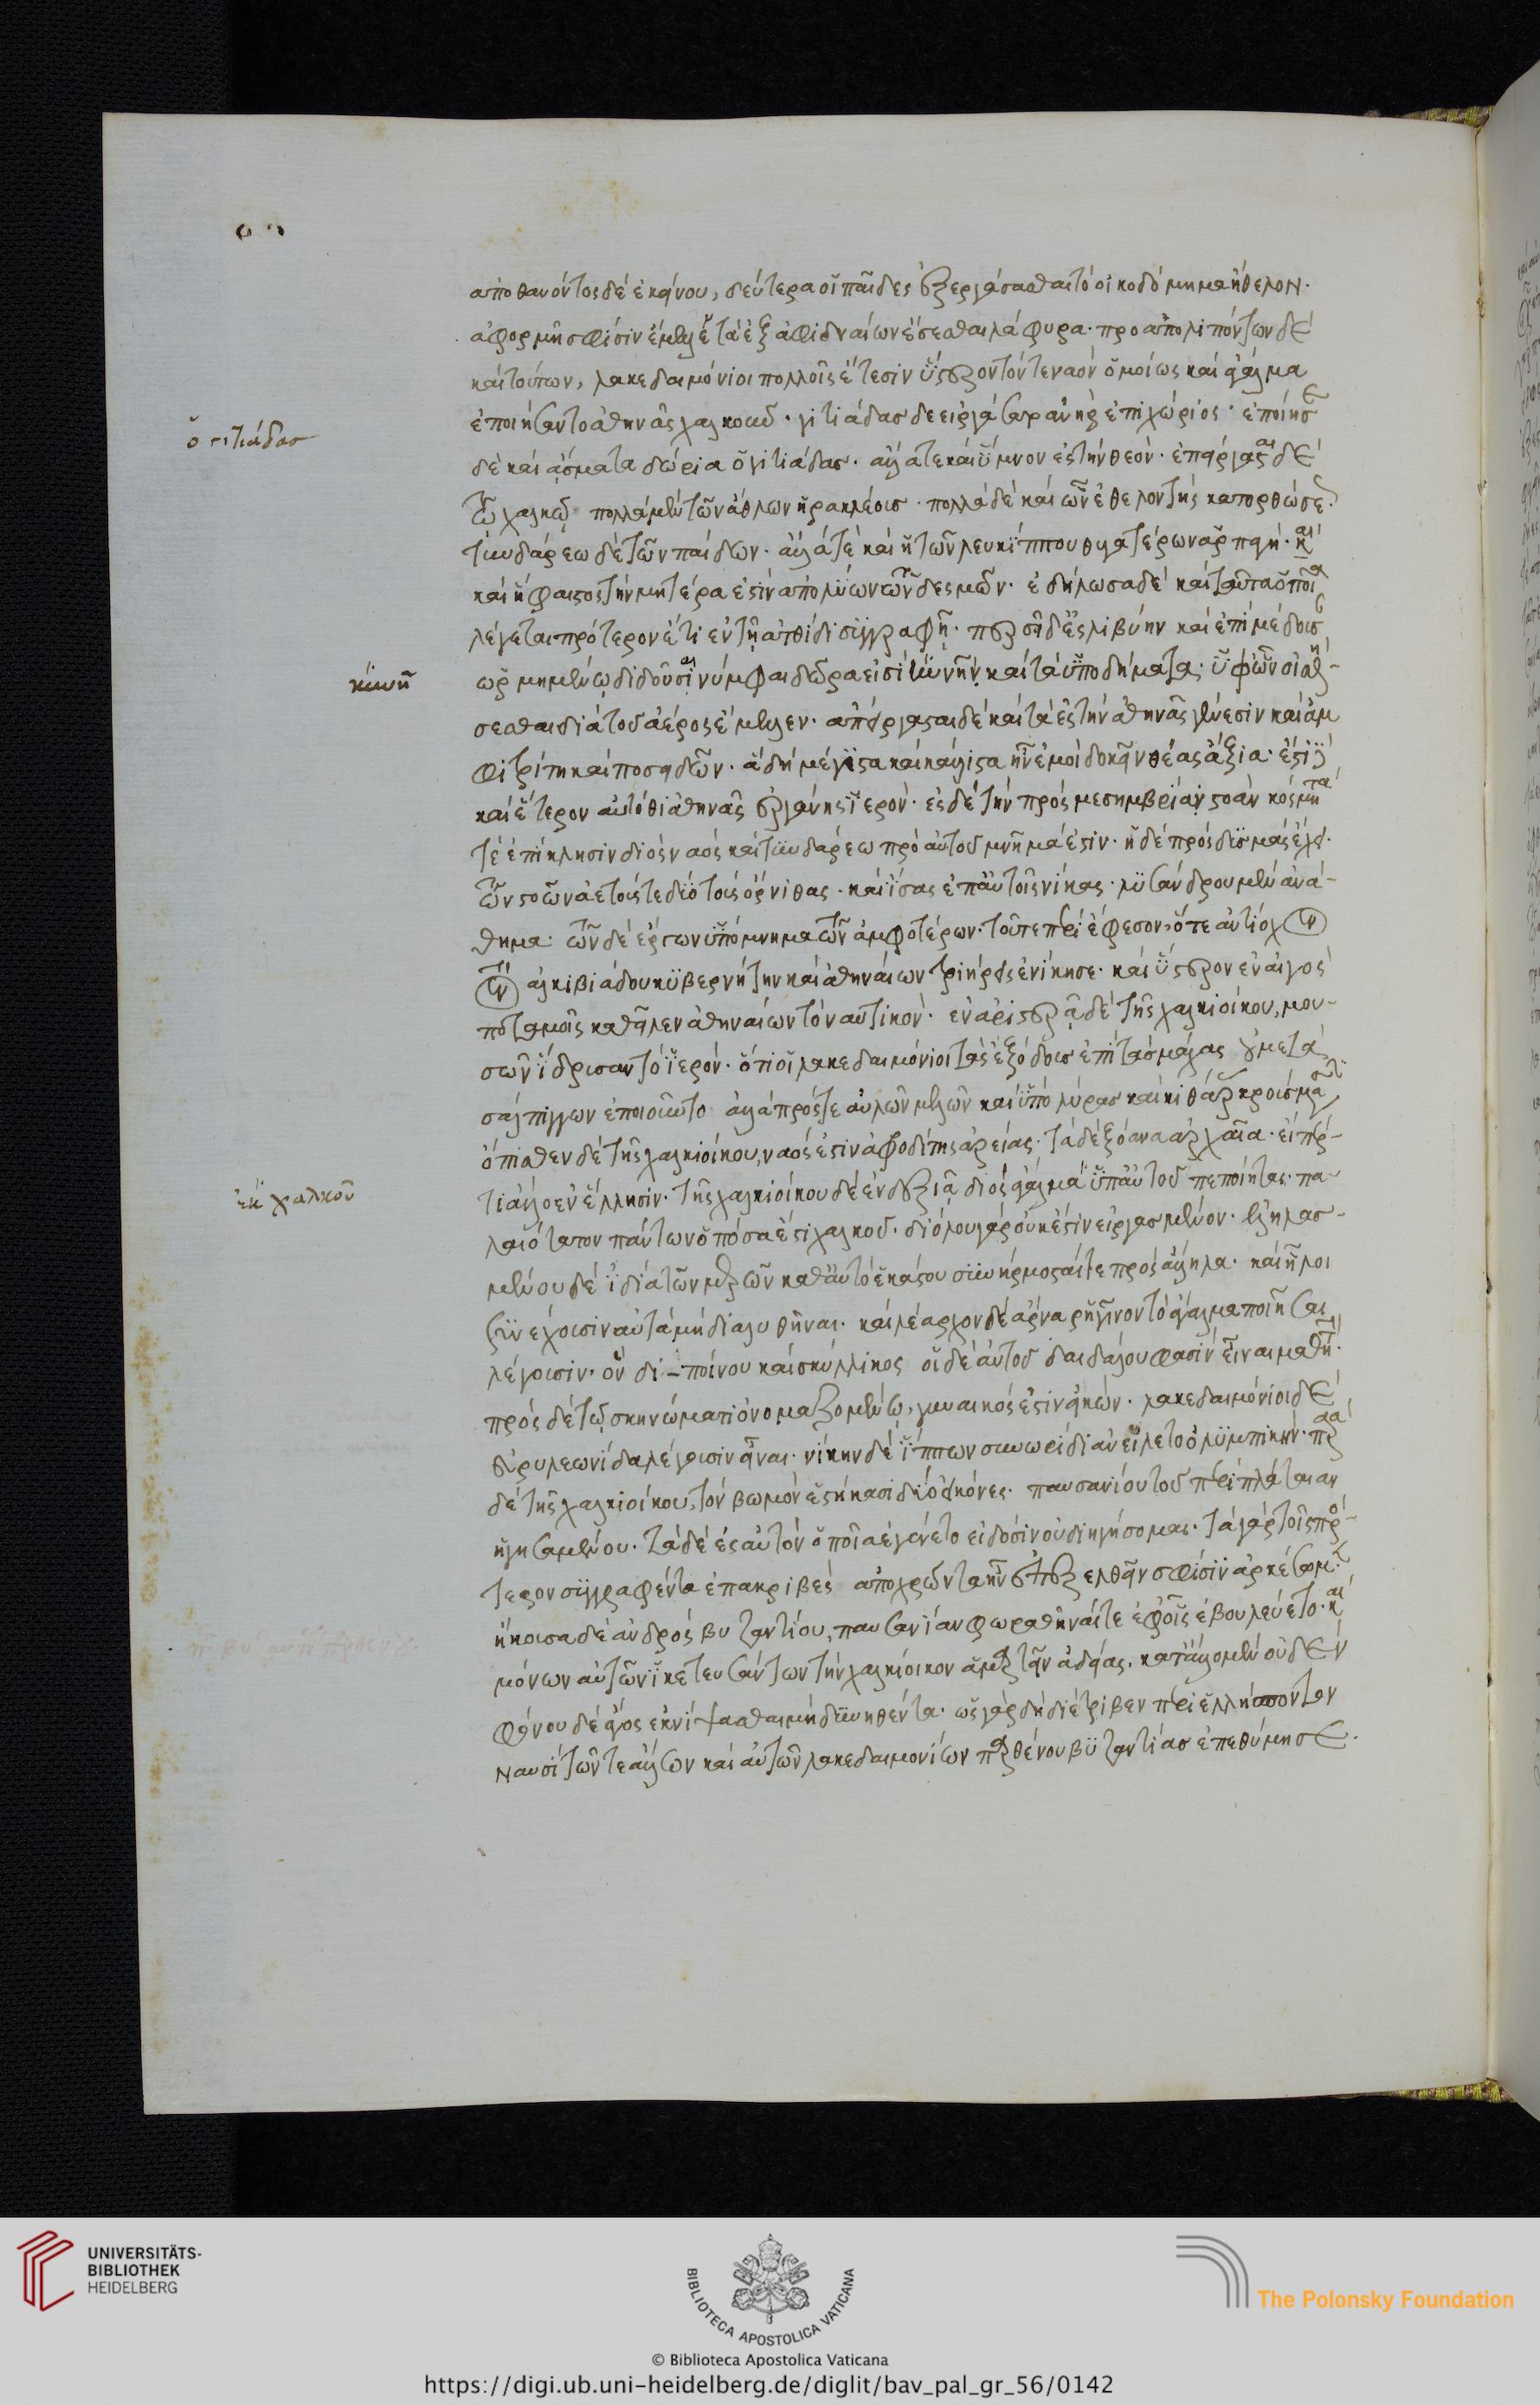 ἀποθανόντος δὲ ἐκείνου, δεύτερα οἱ παῖδες ἐξεργάσασθαι τὸ οἰκοδόμημα ἤθελον·
ἀφορμὴ σφίσιν ἔμελλε τὰ ἐξ ἀφιδναίων ἔσεσθαι λάφυρα· προαπολιπόντων δὲ
καὶ τούτων, λακεδαιμόνιοι πολλοῖς ἔτεσιν ὕστερον τόν τε ναὸν ὁμοίως καὶ ἄγαλμα
ἐποιήσαντο ἀθηνᾶς χαλκοῦν· γιτιάδας δὲ εἰργάσατο ἀνὴρ ἐπιχώριος· ἐποίησε
ὁ γιτιάδας
δὲ καὶ ᾄσματα δώρια ὁ γιτιάδας· ἄλλά τε καὶ ὕμνον ἐς τὴν θεόν· ἐπείργασται δὲ
τῷ χαλκῷ πολλὰ μὲν τῶν ἄθλων ἡρακλέους· πολλὰ δὲ καὶ ὧν ἐθελοντὴς κατορθώσε·
τυνδάρεω δὲ τῶν παίδων· ἄλλά τε καὶ ἡ τῶν λευκίππου θυγατέρων ἁρπαγή· καὶ
καὶ ἥφαιστος τὴν μητέρα ἐστὶν ἀπολύων τῶν δεσμῶν· ἐδήλωσα δὲ καὶ ταῦτα ὁποῖα
λέγεται πρότερον ἔτι ἐν τῇ ἀτθίδι συγγραφῇ· περσεῖ δ' ἐς λιβύην καὶ ἐπὶ μέδουσαν
ὡρμημένῳ διδοῦσαι νύμφαι δῶρα εἰσὶ κυνῆν καὶ τὰ ὑποδήματα· ὑφ' ὧν οἰσθή-
κυνῆ
σεσθαι διὰ τοῦ ἀέρος ἔμελλεν· ἀπείργασται δὲ καὶ τὰ ἐς τὴν ἀθηνᾶς γένεσιν καὶ ἀμ
φιτρίτη καὶ ποσειδῶν· ἃ δὴ μέγιστα καὶ κάλλιστα ἦν ἐμοὶ δοκεῖν θέας ἄξια· ἔστι
καὶ ἕτερον αὐτόθι ἀθηνᾶς ἐργάνης ἱερόν· ἐς δὲ τὴν πρὸς μεσημβρίαν στοὰν κοσμητὰ
τε ἐπίκλησιν διὸς ναὸς καὶ τυνδάρεω πρὸ αὐτοῦ μνῆμά ἐστιν· ἡ δὲ πρὸς δυσμὰς ἔχει
τῶν στοῶν ἀετούς τε δύο τοὺς ὄρνιθας· καὶ ἴσας ἐπ' αὐτοῖς νίκας· λυσάνδρου μὲν ἀνά-
θημα· τῶν δὲ ἔργων ὑπόμνημα τῶν ἀμφοτέρων· τοῦτε περὶ ἔφεσον, ὅτε ἀντίοχον
τὸν ἀλκιβιάδου κυβερνήτην καὶ ἀθηναίων τριήρεις ἐνίκησε· καὶ ὕστερον ἐν αἰγὸς
ποταμοῖς καθεῖλεν ἀθηναίων τὸ ναυτικόν· ἐν ἀριστερᾷ δὲ τῆς χαλκιοίκου, μου-
σῶν ἱδρύσαντο ἱερόν· ὅτι οἱ λακεδαιμόνιοι τὰς ἐξόδους ἐπὶ τὰς μάχας οὐ μετὰ
σαλπίγγων ἐποιοῦντο ἀλλὰ πρός τε αὐλῶν μελῶν καὶ ὑπὸ λύρας καὶ κιθάρας κρούσμασιν·
ὄπισθεν δὲ τῆς χαλκιοίκου, ναός ἐστιν ἀφροδίτης ἀρείας· τὰ δὲ ξόανα ἀρχαῖα· εἴπερ-
τι ἄλλο ἐν ἕλλησιν· τῆς χαλκιοίκου δὲ ἐν δεξιᾷ διὸς ἄγαλμα ὑπ' αὐτοῦ πεποίηται· πα-
ἐκ χαλκοῦ
λαιότατον πάντων ὁπόσα ἐστὶ χαλκοῦ· δι' ὅλου γὰρ οὐκ ἔστιν εἰργασμένον· ἐληλασ-
μένου δὲ ἰδίᾳ τῶν μερῶν καθ' αὑτὸ ἑκάστου συνήρμοσταί τε πρὸς ἄλληλα· καὶ ἧλοι
συνέχουσιν αὐτὰ μὴ διαλυθῆναι· καὶ λέαρχον δὲ ἄνδρα ῥηγῖνον τὸ ἄγαλμα ποιῆσαι
λέγουσιν· ὃν διποίνου καὶ σκύλλιδος οἱ δὲ αὐτοῦ δαιδάλου φασὶν εἶναι μαθητήν·
πρὸς δὲ τῷ σκηνώματι ὀνομαζομένῳ, γυναικός ἐστιν εἰκών· λακεδαιμόνιοι δὲ
εὐρυλεωνίδα λέγουσιν εἶναι· νίκην δὲ ἵππων συνωρίδι ἀνείλετο ὀλυμπικήν· παρὰ
δὲ τῆς χαλκιοίκου, τὸν βωμὸν ἑστήκασι δύο εἰκόνες· παυσανίου τοῦ περὶ πλάταιαν
ἡγησαμένου· τὰ δὲ ἐς αὐτὸν ὁποῖα ἐγένετο εἰδόσιν οὐ διηγήσομαι· τὰ γὰρ τοῖς πρό-
τερον συγγραφέντα ἐπ' ἀκριβὲς ἀποχρῶντα ἦν ἐπεξελθεῖν σφίσιν ἀρκέσομαι·
ἤκουσα δὲ ἀνδρὸς βυζαντίου, παυσανίαν φωραθῆναί τε ἐφ' οἷς ἐβουλεύετο· καὶ
μόνων αὐτῶν ἱκετευσάντων τὴν χαλκίοικον ἁμαρτεῖν ἀδείας· κατ' ἄλλο μὲν οὐδὲν
φόνου δὲ ἄγος ἐκνίψασθαι μὴ δυνηθέντα· ὡς γὰρ δὴ διέτριβεν περὶ ἑλλήσποντον
ναυσὶ τῶν τε ἄλλων καὶ αὐτῶν λακεδαιμονίων παρθένου βυζαντίας ἐπεθύμησε·
UNIVERSITÄTS-
BIBLIOTHEK
HEIDELBERG
BIBLIOTECA APOSTOLICA VATICANA
The Polonsky Foundation
© Biblioteca Apostolica Vaticana
https://digi.ub.uni-heidelberg.de/diglit/bav_pal_gr_56/0142